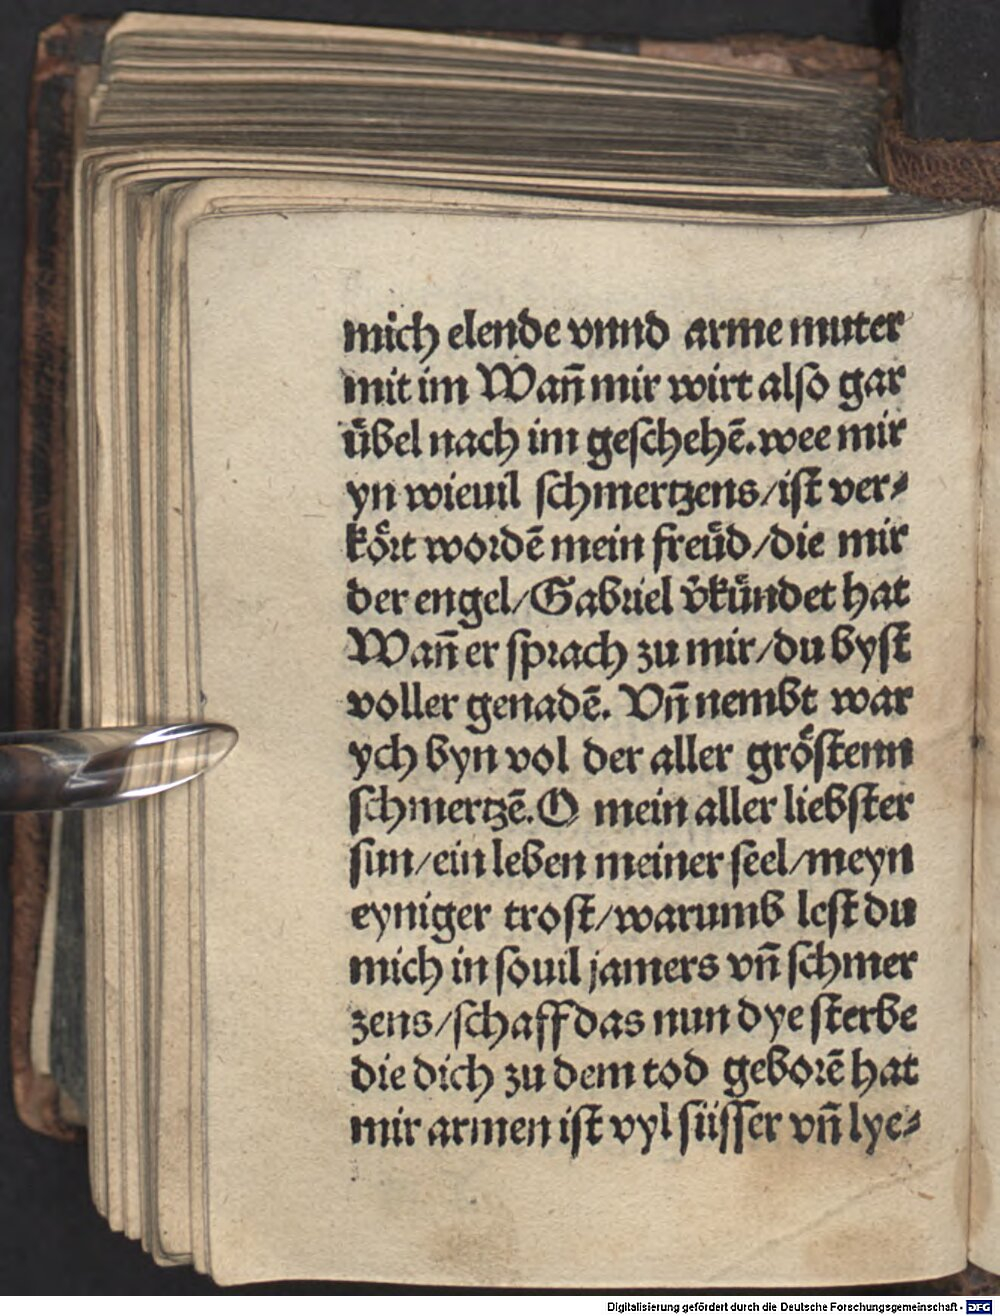 mich elende vnnd arme muter
mit im Wañ mir wirt also gar
uͤbel nach im geschehē. wee mir
yn wieuil schmertzens/ist ver⸗
koͤrt wordē mein freuͤd/die mir
der engel/Gabriel v̄kuͤndet hat
Wañ er sprach zu mir/du byst
voller genadē. Vñ nembt war
ych byn vol der aller groͤstenn
schmertzē. O mein aller liebster
sun/ein leben meiner seel/meyn
eyniger trost/warumb lest du
mich in souil jamers vñ schmer
zens/schaff das nun dye sterbe
die dich zu dem tod geborē hat
mir armen ist vyl süsser vñ lye⸗
Digitalisierung gefördert durch die Deutsche Forschungsgemeinschaft - DFG